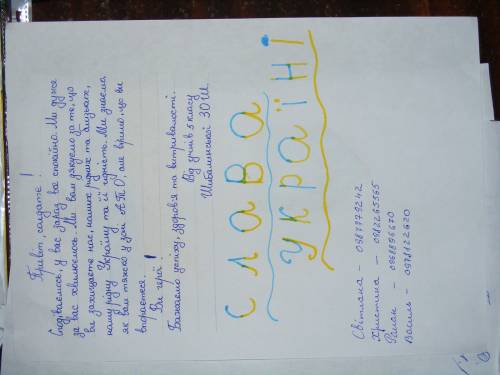 Привіт, солдате!
Сподіваємось, у вас зараз все спокійно. Ми дуже
за вас хвилюємось. Ми вам дякуємо за те, що
ви захищаєте нас, наших рідних та близьких,
нашу рідну Україну та її гідність. Ми знаємо
як вам тяжко у зоні АТО, але віримо, що ви
впораєтесь.
Ви герої!
Бажаємо успіху, здоров'я та витривалості.
Від учнів 5 класу
ЗОШ
СлаВа
Україні
Світлана - 0987779242
Христина - 0982265565
Роман - 0968596670
Василь - 0978122620